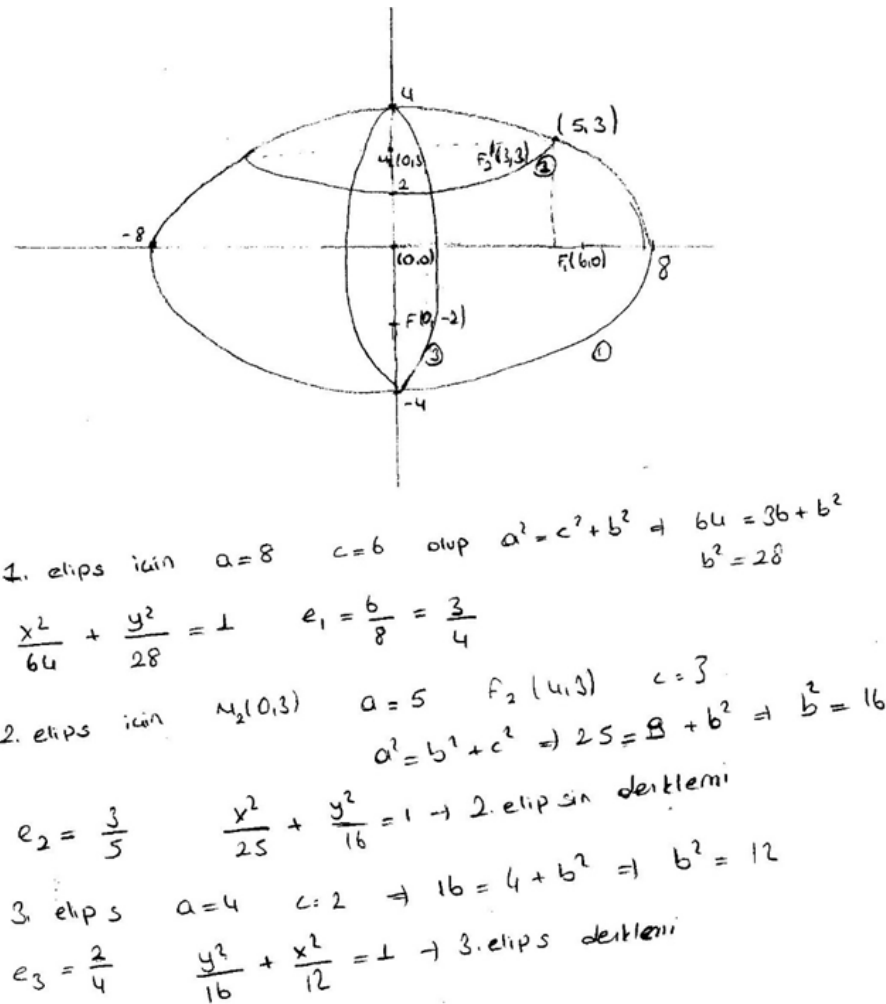 4
(5,3)
M₂(0,3)
F₂(3,3)
②
2
-8
(0,0)
F₁(6,0)
8
F(0,-2)
③
①
-4
1. elips icin a=8 c=6 olup a² = c² + b² ⇒ 64 = 36 + b²
b² = 28
x²/64 + y²/28 = 1 e₁ = 6/8 = 3/4
2. elips icin M₂(0,3) a = 5 F₂(4,3) c = 3
a² = b² + c² ⇒ 25 = 9 + b² ⇒ b² = 16
e₂ = 3/5 x²/25 + y²/16 = 1 → 2. elipsin denklemi
3. elips a=4 c=2 ⇒ 16 = 4 + b² ⇒ b² = 12
e₃ = 2/4 y²/16 + x²/12 = 1 → 3. elips denklemi